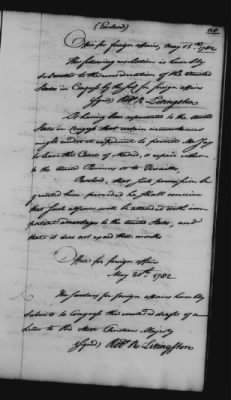 (Enclosed)
Office for foreign affairs, May 18th 1782
The following resolution is humbly
submitted to the consideration of the united
States in Congress by the Sec'y for foreign affairs
Signd Robt R. Livingston
It having been represented to the united
States in Congress that certain circumstances
might render it expedient to permit Mr Jay
to leave the Court of Madrid, & repair either
to the united Provinces or to Versailles,
Resolved, that such permission be
granted him, provided he shall conceive
that such absence will be attended with
important advantage to the united States, and
that it does not exceed three months
Office for foreign affairs
May 20th 1782
The Secretary for foreign affairs humbly
submits to Congress the enclosed draft of a
letter to the Most Christian Majesty
(Signd) Robt R Livingston